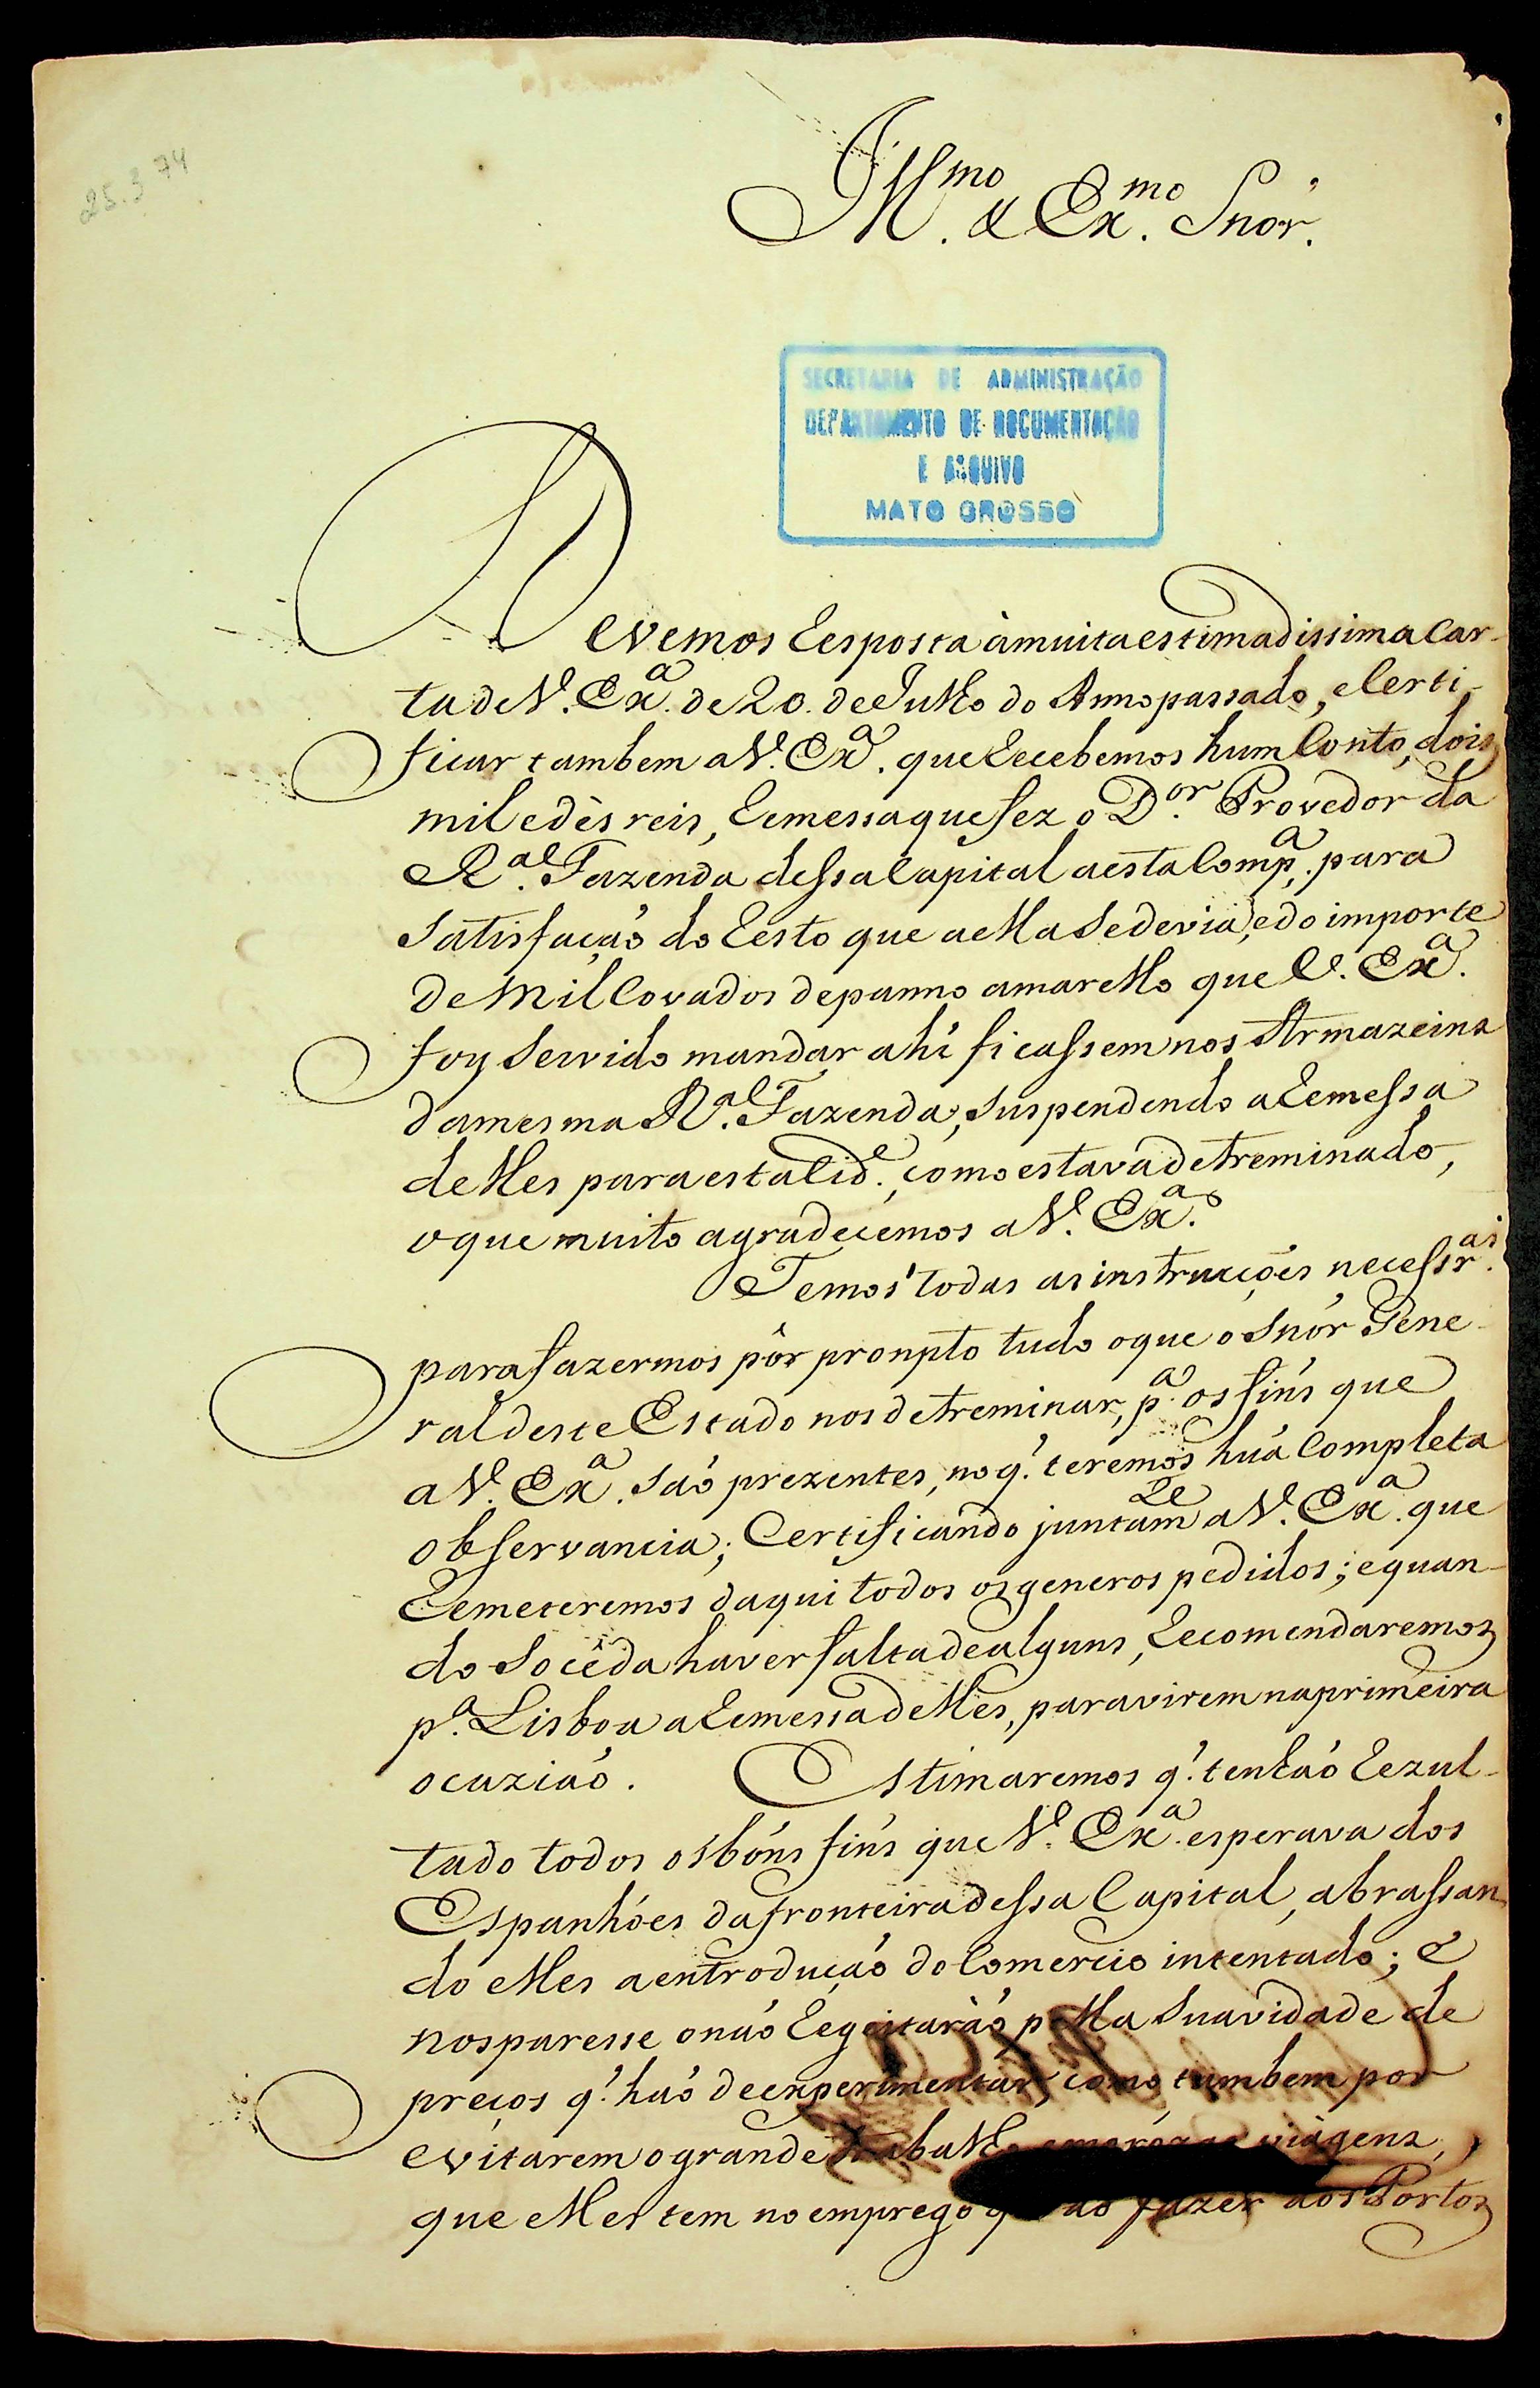 25.3 74
Ill.mo & Ex.mo Snor.
SECRETARIA DE ADMINISTRAÇÃO
DEPARTAMENTO DE DOCUMENTAÇÃO
E ARQUIVO
MATO GROSSO
Devemos Resposta à muita estimadissima Car-
ta de V. Ex.a de 20. de Julho do Anno passado, e Certi-
ficar tambem a V. Ex.a que Recebemos hum Conto, dois
mil e dès reis, Remessa que fez o D.or Provedor da
R.al Fazenda dessa Capital a esta Comp.a para
Satisfação do Resto que a ella Se devia, e do importe
de Mil Covados de panno amarello que V. Ex.a
foy Servido mandar ahi ficassem nos Armazeins
da mesma R.al Fazenda, Suspendendo a Remessa
delles para esta Cid.e, como estava detreminado,
o que muito agradecemos a V. Ex.a
Temos todas as instrucções necessr.as
para fazermos pôr prompto tudo o que o Snor Gene-
ral deste Estado nos detreminar, p.a os fins que
a V. Ex.a São prezentes, no q' teremos hûa Completa
observancia; Certificando juntam.te a V. Ex.a que
Remeteremos daqui todos os generos pedidos; e quan-
do Soceda haver falta de alguns, Recomendaremos
p.a Lisboa a Remessa delles, para virem na primeira
ocazião. Estimaremos q' tenhão Rezul-
tado todos os bóns fins que V. Ex.a esperava dos
Espanhóes da fronteira dessa Capital, abrassan-
do elles a entrodução do Comercio intentado; e
nos paresse o não Regeitarão pella Suavidade de
preços q' hão de experimentar, como tambem por
evitarem o grande trabalho viagens,
que elles tem no emprego fazer aos Portos